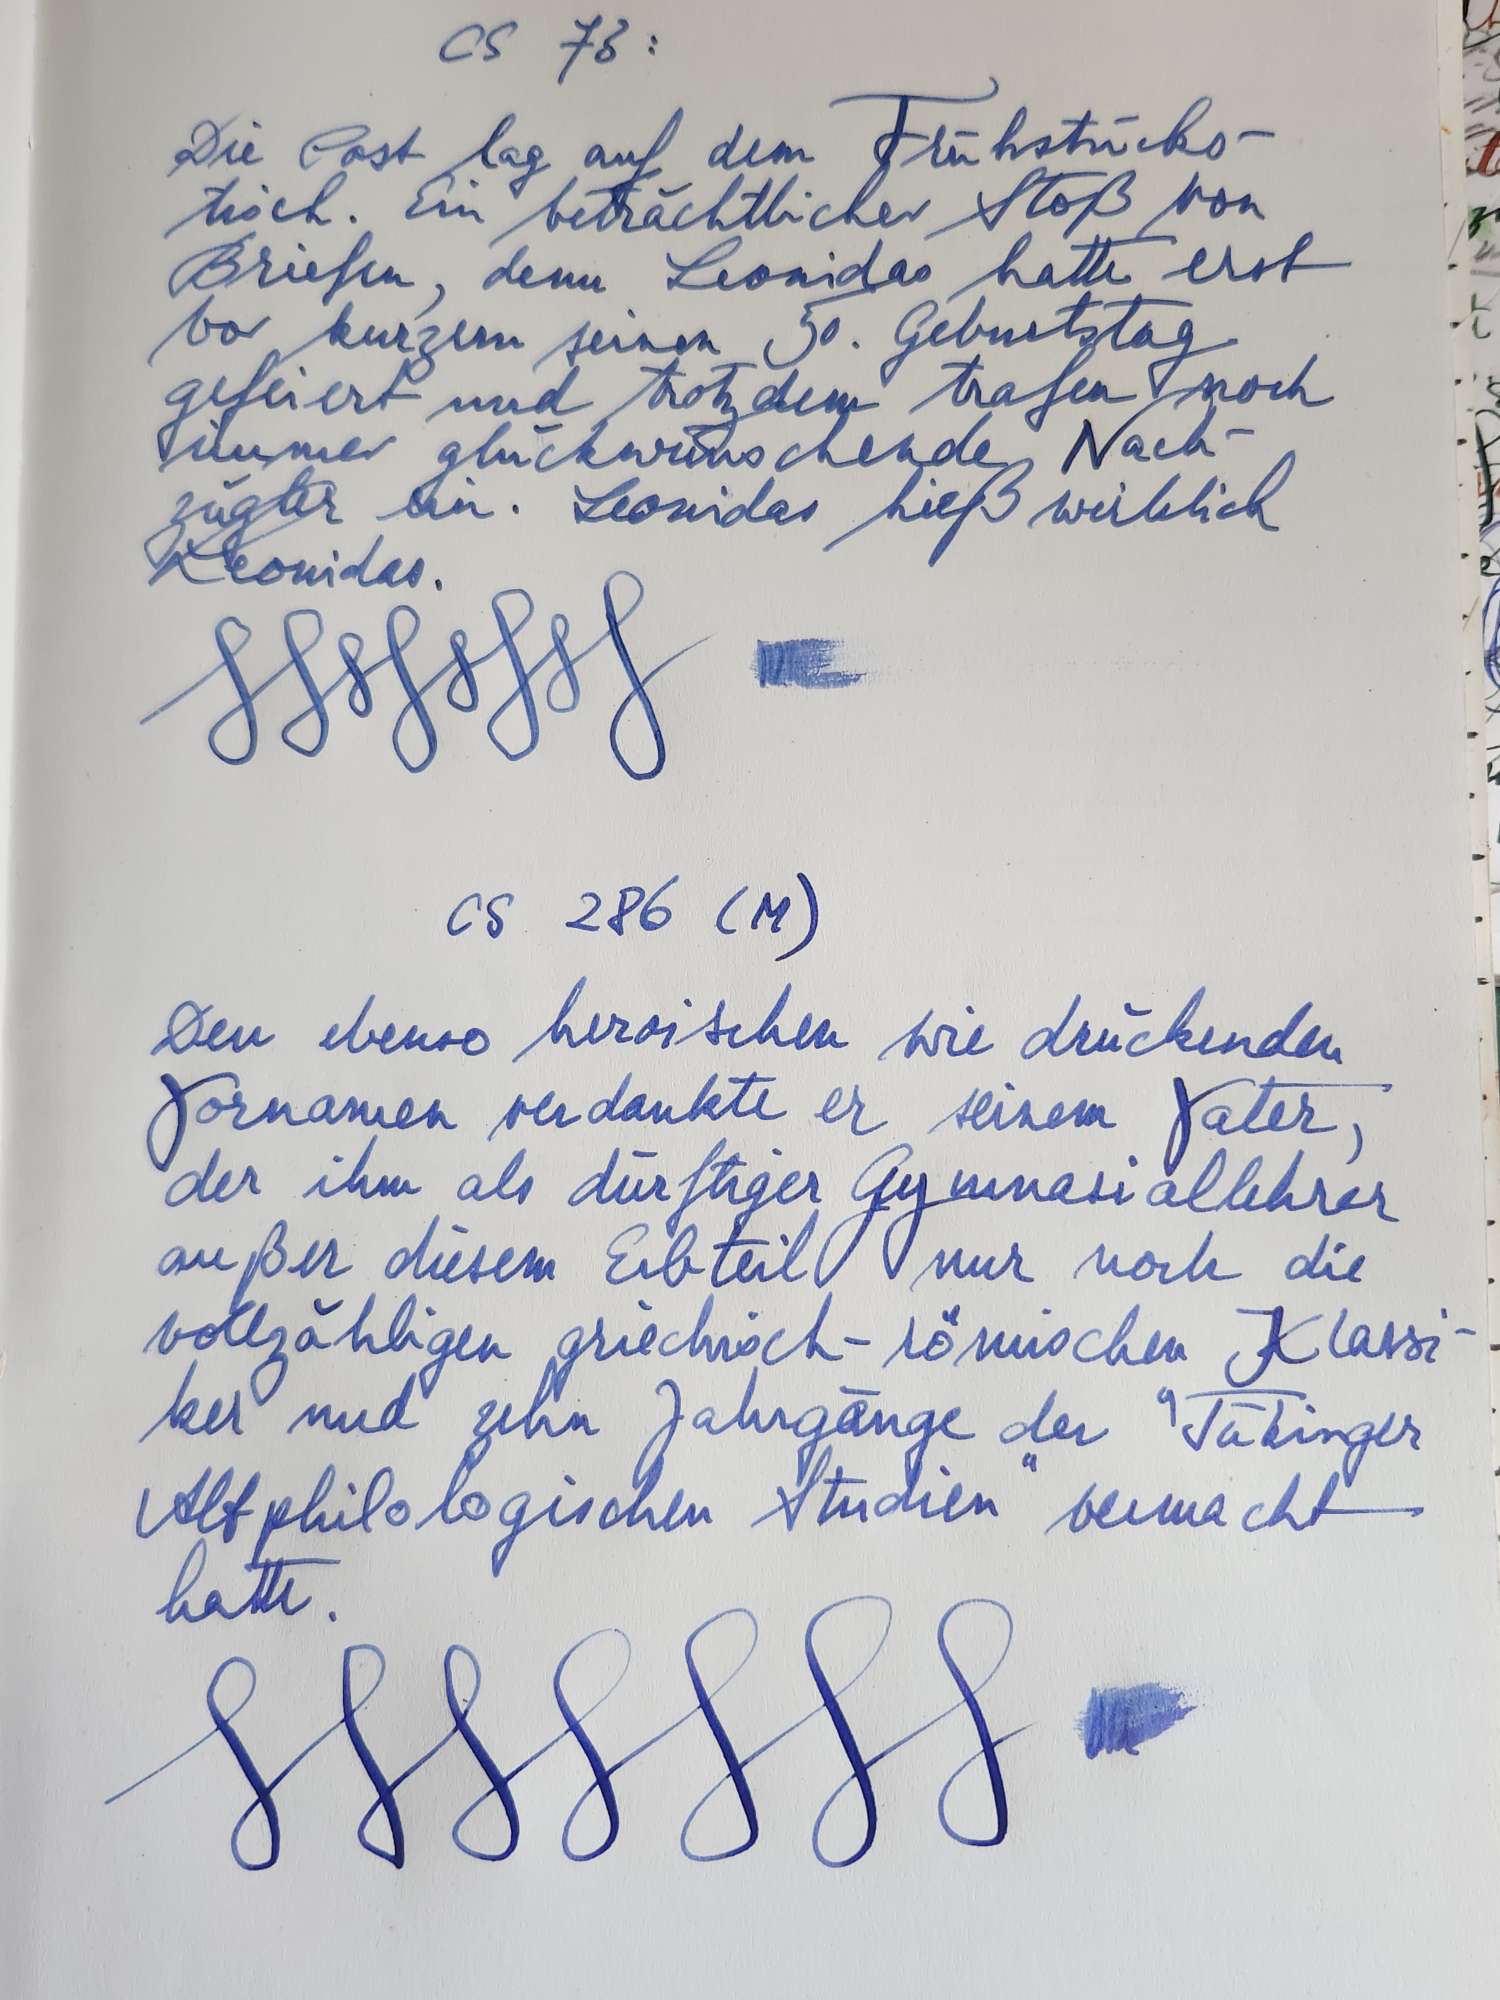 CS 73:
Die Post lag auf dem Frühstücks-
tisch. Ein beträchtlicher Stoß von
Briefen, denn Leonidas hatte erst
vor kurzem seinen 50. Geburtstag
gefeiert und trotzdem trafen noch
immer glückwünschende Nach-
zügler ein. Leonidas hieß wirklich
Leonidas.
CS 286 (M)
Den ebenso heroischen wie drückenden
Vornamen verdankte er seinem Vater,
der ihm als dürftiger Gymnasiallehrer
außer diesem Erbteil nur noch die
vollzähligen griechisch-römischen Klassi-
ker und zehn Jahrgänge der "Tübinger
Altphilologischen Studien" vermacht
hatte.